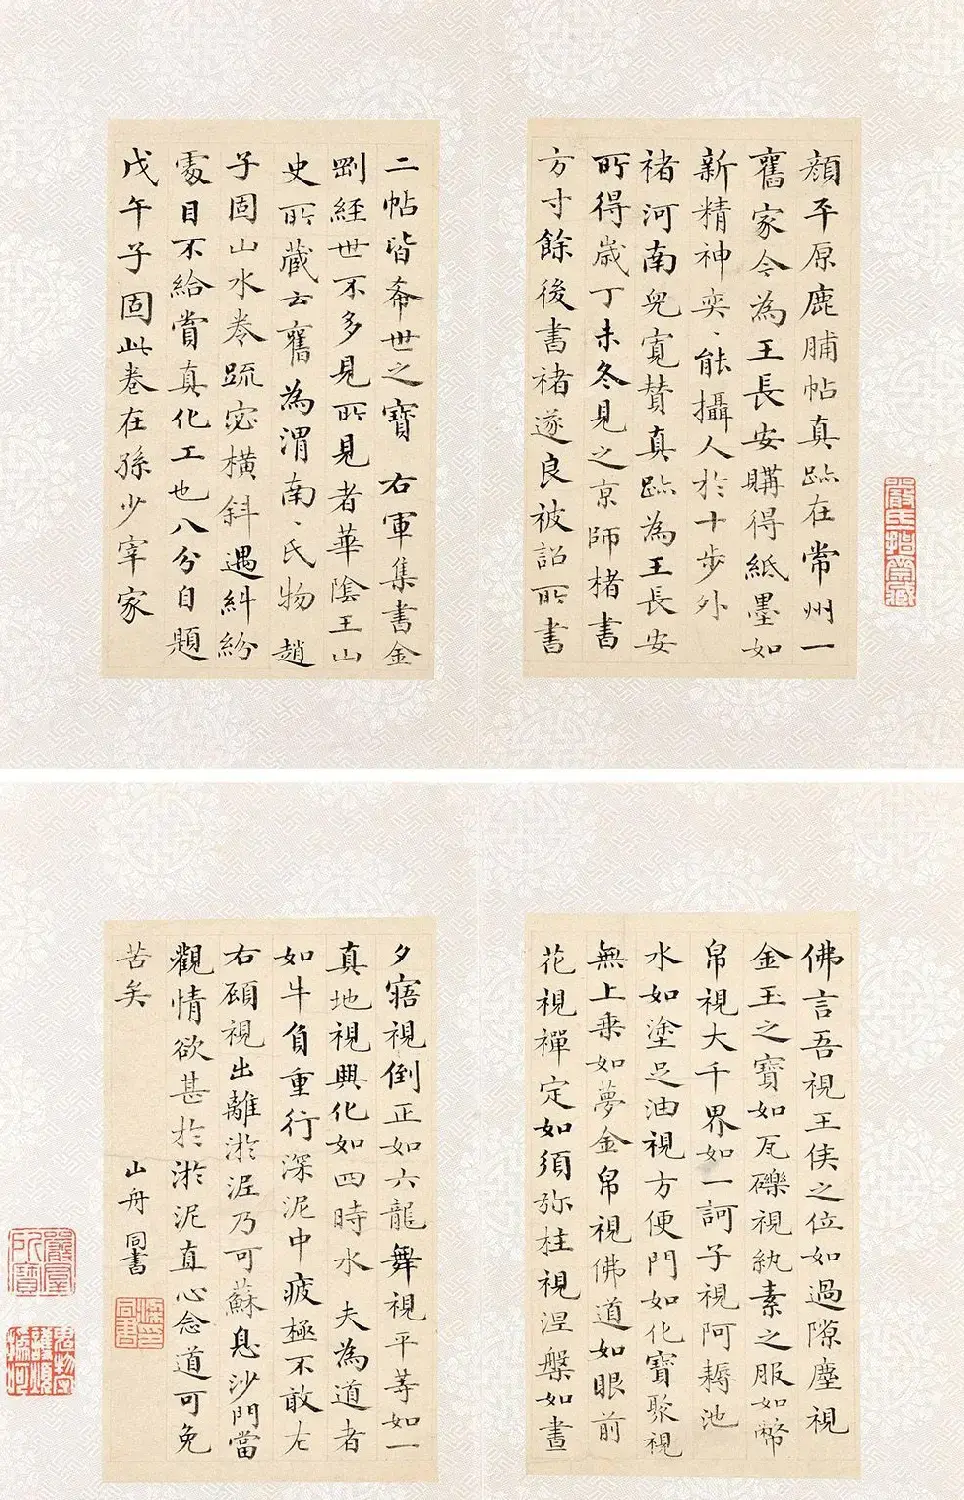 顏平原鹿脯帖真跡在常州一
舊家今為王長安購得紙墨如
新精神奕、能攝人於十步外
褚河南兒寬贊真跡為王長安
所得歲丁未冬見之京師楮書
方寸餘後書褚遂良被詔所書
二帖皆希世之寶 右軍集書金
剛經世不多見所見者華陰王山
史所藏云舊為渭南、氏物 趙
子固山水卷疏密橫斜遇糾紛
處目不給賞真化工也八分自題
戊午子固此卷在孫少宰家
佛言吾視王侯之位如過隙塵視
金玉之寶如瓦礫視紈素之服如幣
帛視大千界如一訶子視阿耨池
水如塗足油視方便門如化寶聚視
無上乘如夢金帛視佛道如眼前
花視禪定如須弥柱視涅槃如晝
夕寤視倒正如六龍舞視平等如一
真地視興化如四時水 夫為道者
如牛負重行深泥中疲極不敢左
右顧視出離淤泥乃可蘇息沙門當
觀情欲甚於淤泥直心念道可免
苦矣
山舟同書